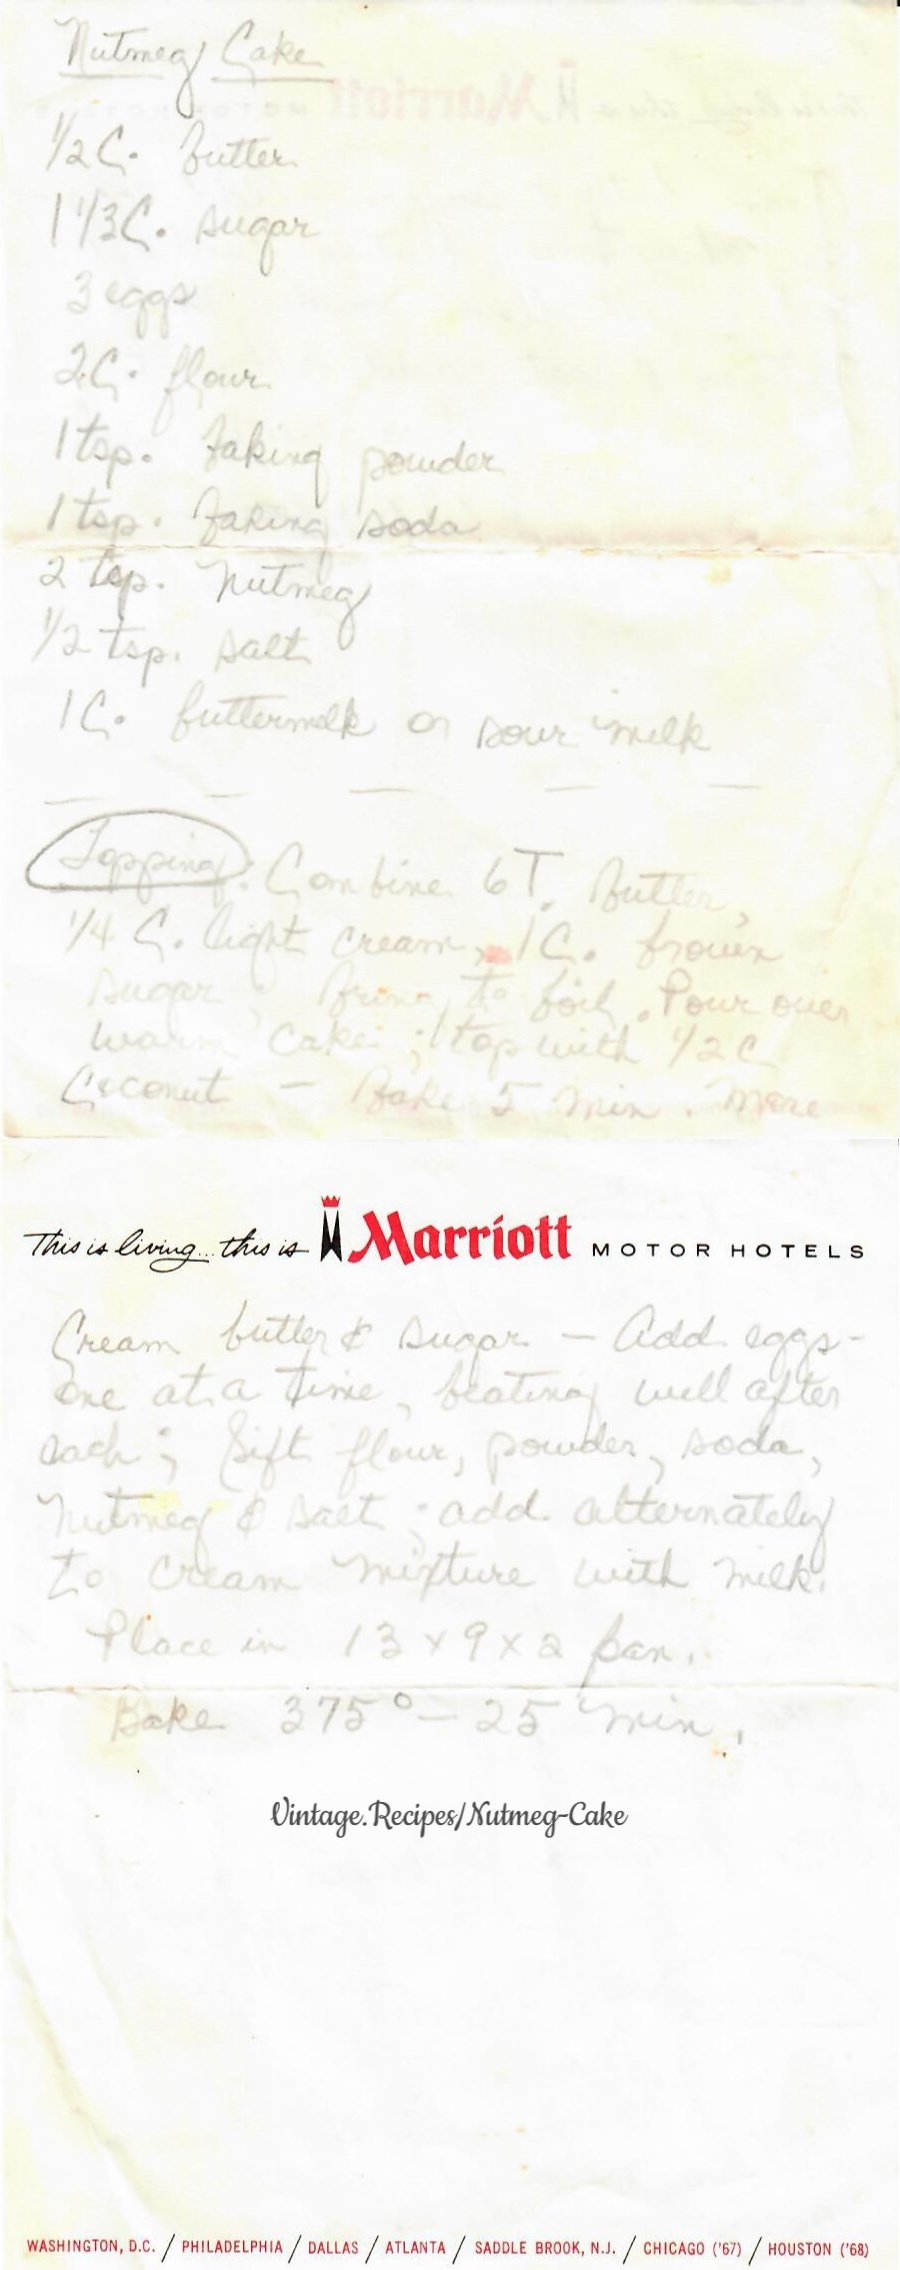 Nutmeg Cake
1/2 C. butter
1 1/3 C. sugar
3 eggs
2 C. flour
1 tsp. baking powder
1 tsp. baking soda
2 tsp. nutmeg
1/2 tsp. salt
1 C. buttermilk or sour milk
Topping: Combine 6 T. butter,
1/4 C. light cream, 1 C. brown
sugar, bring to boil. Pour over
warm cake; top with 1/2 C
Coconut — Bake 5 min. more
This is living...this is Marriott MOTOR HOTELS
Cream butter & sugar — Add eggs -
one at a time, beating well after
each; Sift flour, powder, soda,
nutmeg & salt; add alternately
to cream mixture with milk.
Place in 13 x 9 x 2 pan.
Bake 375° — 25 min.
Vintage.Recipes/Nutmeg-Cake
WASHINGTON, D.C. / PHILADELPHIA / DALLAS / ATLANTA / SADDLE BROOK, N.J. / CHICAGO ('67) / HOUSTON ('68)